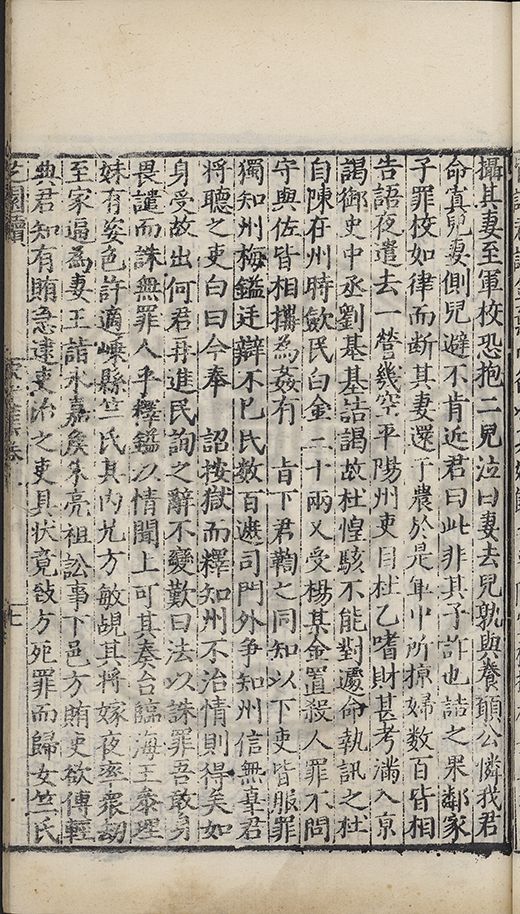 攝其妻至軍校恐抱二兒泣曰妻去兒孰與養願公憐我君
命寘兒妻側兒避不肯近君曰此非其子詐也詰之果鄰家
子罪校如律而断其妻還于農於是軍中所掠婦數百皆相
告語夜遣去一營幾空平陽州吏目杜乙嗜財甚考滿入京
謁御史中丞劉基基詰謁故杜惶駭不能對遽命執訊之杜
自陳在州時歛民白金二十兩又受楊某金置殺人罪不問
守與佐皆相攜為姦有 旨下君鞫之同知以下吏皆服罪
獨知州梅鎰廷辯不已民数百遮司門外争知州信無辜君
将聽之吏白曰今奉 詔按獄而釋知州不治情則得矣如
身受故出何君再進民詢之辭不變歎曰法以誅罪吾敢身
畏譴而誅無罪人乎釋鎰以情聞上可其奏台臨海王泰理
妹有姿色許適嵊縣竺氏其内兄方敏覘其将嫁夜率衆刼
至家逼為妻王詣永嘉矦朱亮祖訟事下邑方賄吏欲傅輕
典君知有賄急逮吏治之吏具状竟敀方死罪而歸女竺氏
芝園續